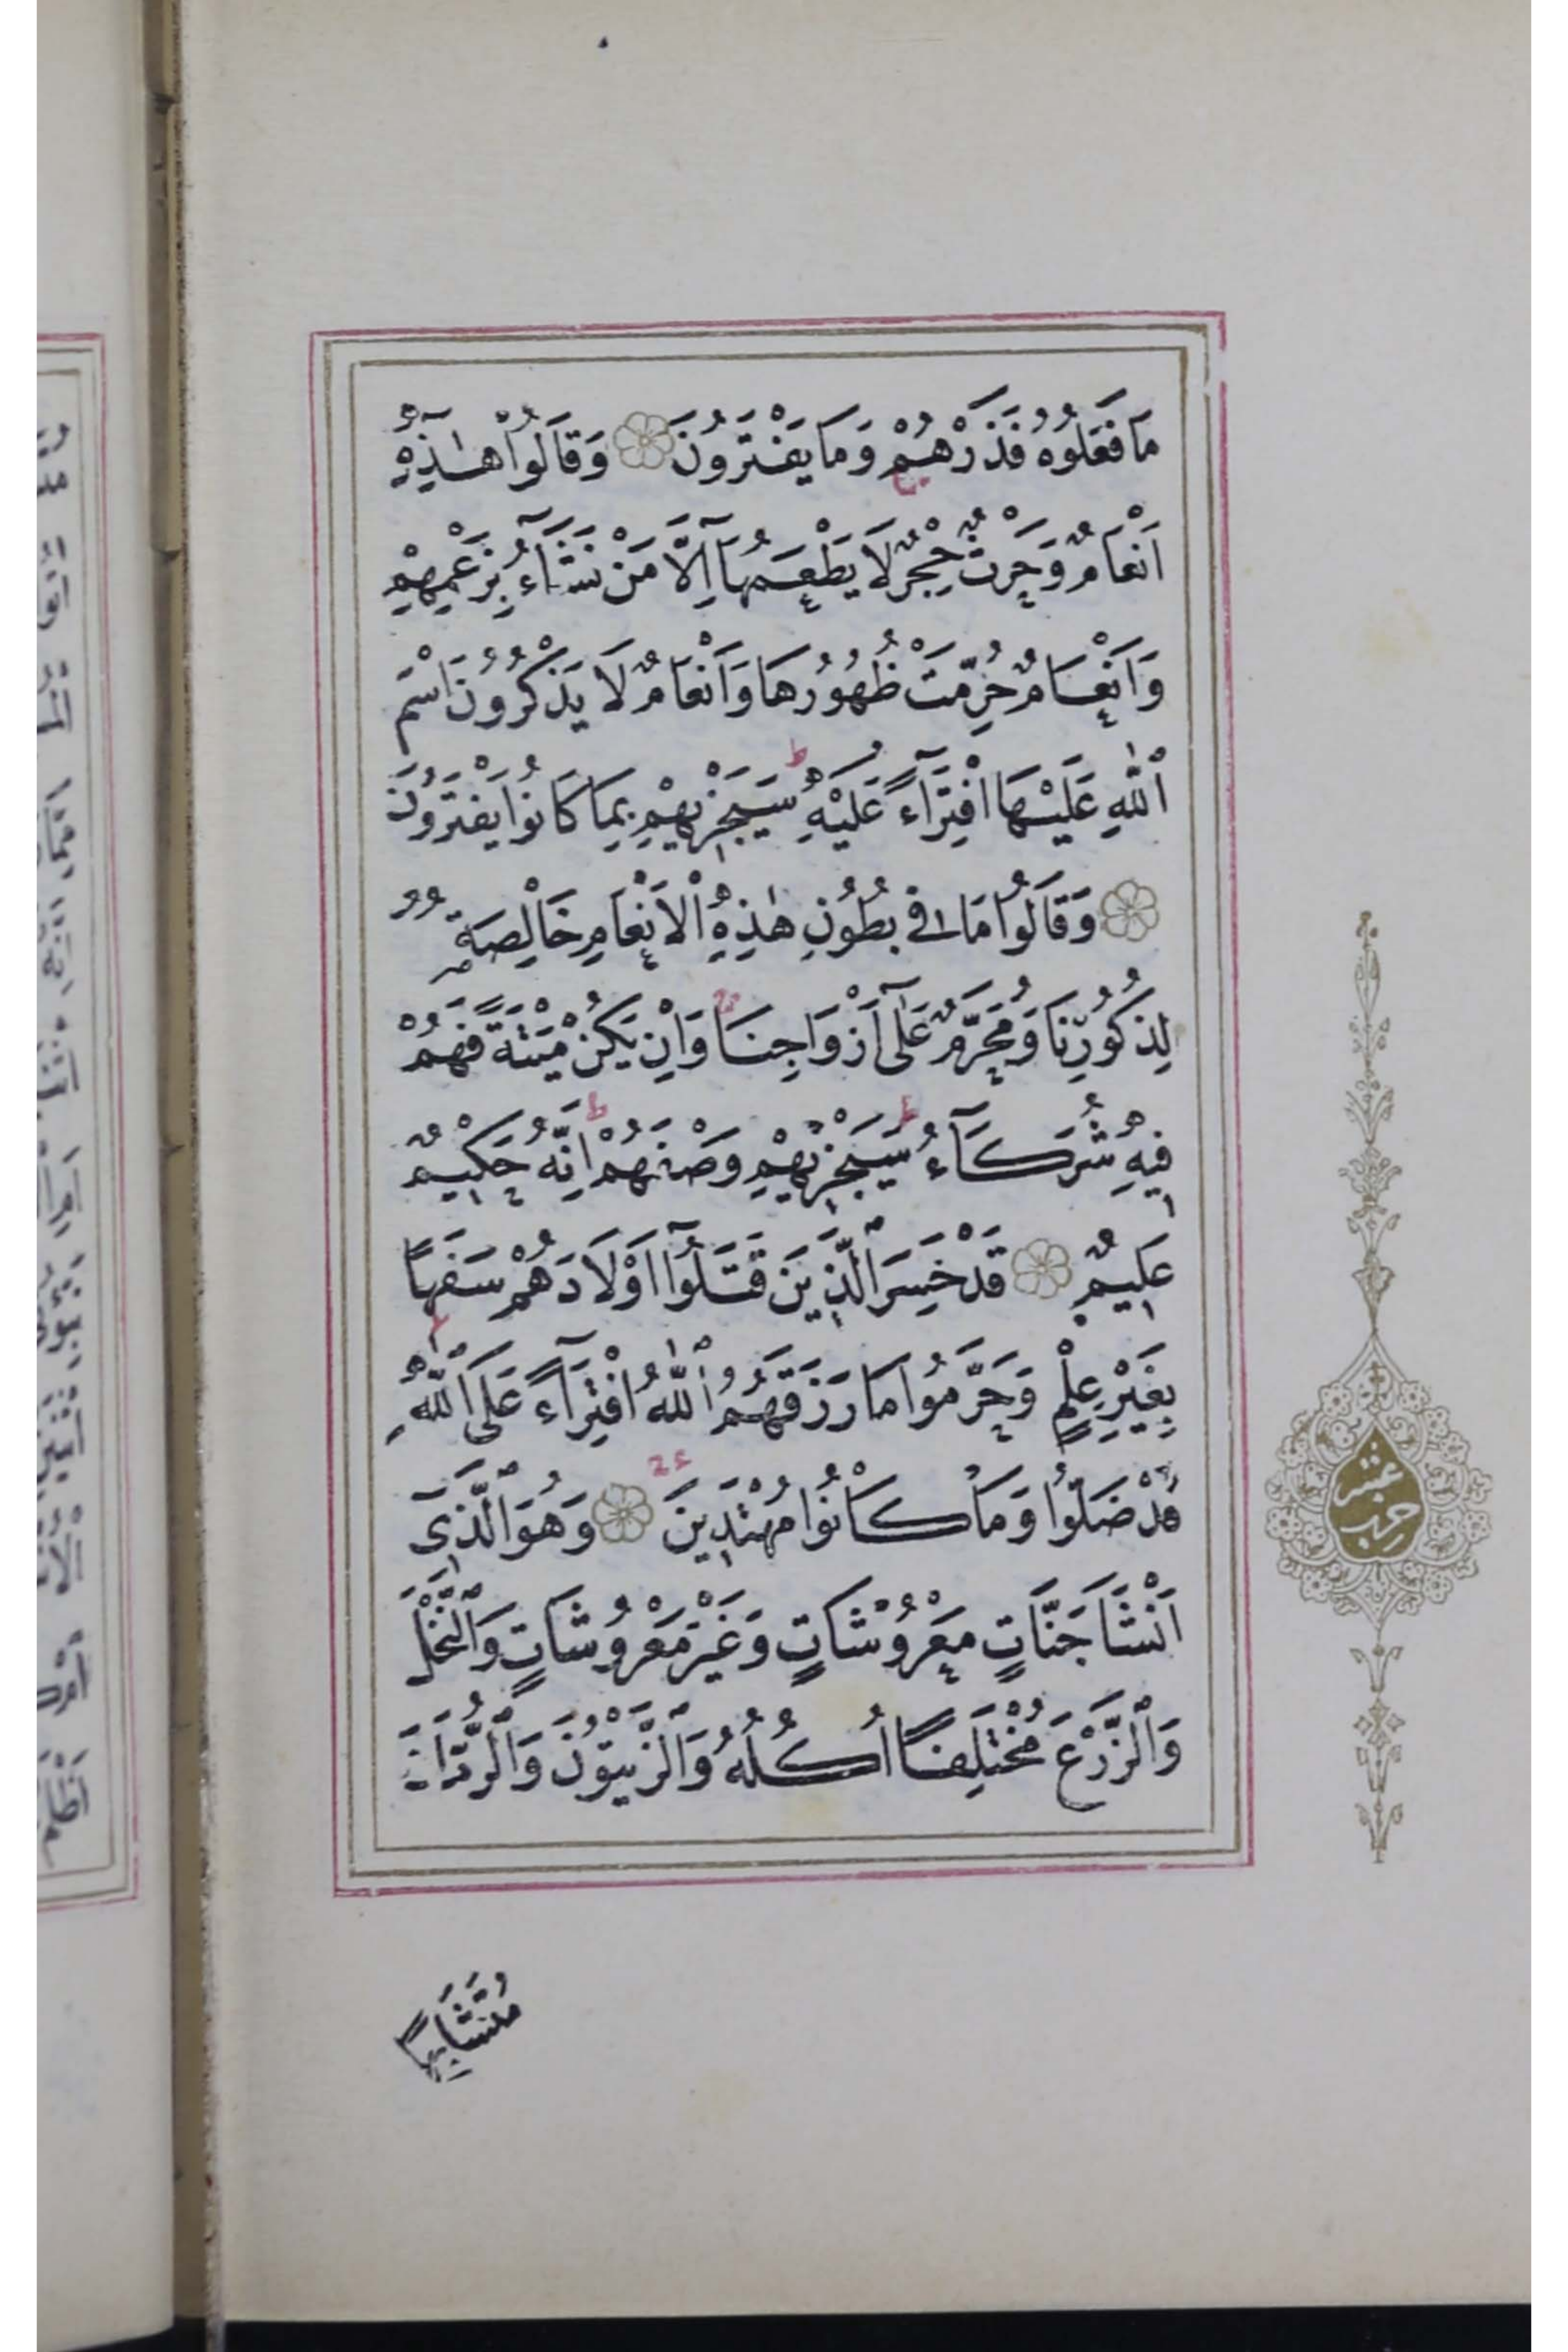 مَا فَعَلُوهُ فَذَرْهُمْ وَمَا يَفْتَرُونَ وَقَالُوا هٰذِهِ
اَنْعَامٌ وَحَرْثٌ حِجْرٌ لَا يَطْعَمُهَآ اِلَّا مَنْ نَشَآءُ بِزَعْمِهِمْ
وَاَنْعَامٌ حُرِّمَتْ ظُهُورُهَا وَاَنْعَامٌ لَا يَذْكُرُونَ اسْمَ
ٱللّٰهِ عَلَيْهَا افْتِرَآءً عَلَيْهِ سَيَجْزِيهِمْ بِمَا كَانُوا يَفْتَرُونَ
وَقَالُوا مَا فِي بُطُونِ هٰذِهِ ٱلْاَنْعَامِ خَالِصَةٌ
لِذُكُورِنَا وَمُحَرَّمٌ عَلٰٓى اَزْوَاجِنَا وَاِنْ يَكُنْ مَيْتَةً فَهُمْ
فِيهِ شُرَكَآءُ سَيَجْزِيهِمْ وَصْفَهُمْ اِنَّهُ حَكِيمٌ
عَلِيمٌ قَدْ خَسِرَ ٱلَّذِينَ قَتَلُوٓا اَوْلَادَهُمْ سَفَهًا
بِغَيْرِ عِلْمٍ وَحَرَّمُوا مَا رَزَقَهُمُ ٱللّٰهُ افْتِرَآءً عَلَى ٱللّٰهِ
قَدْ ضَلُّوا وَمَا كَانُوا مُهْتَدِينَ وَهُوَ ٱلَّذِٓى
اَنْشَاَ جَنَّاتٍ مَعْرُوشَاتٍ وَغَيْرَ مَعْرُوشَاتٍ وَٱلنَّخْلَ
وَٱلزَّرْعَ مُخْتَلِفًا اُكُلُهُ وَٱلزَّيْتُونَ وَٱلرُّمَّانَ
مُتَشَابِهًا
عشر
حزب